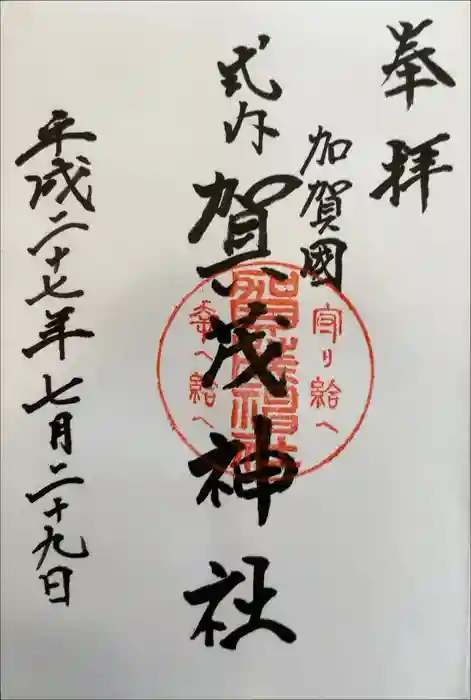 奉拝
加賀國
式内
賀茂神社
守り給へ
幸へ給へ
平成二十七年七月二十九日